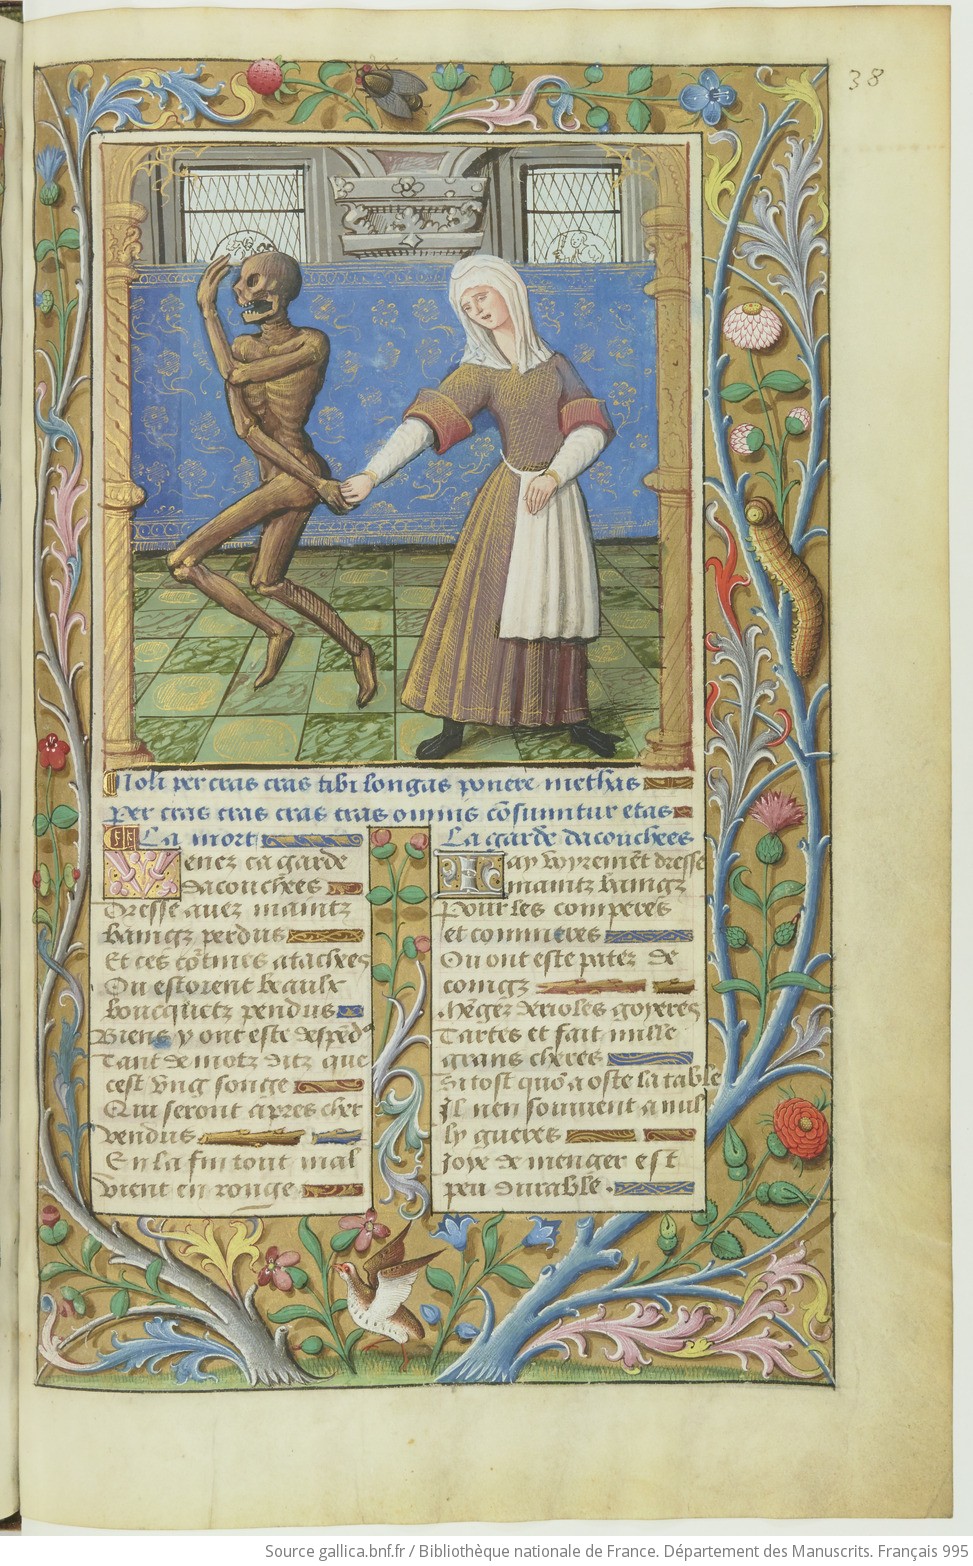 38
Noli per cras cras tibi longas ponere methas
Per cras cras cras cras omnis cõsumitur etas
La mort
Venez ca garde
dacouchees
Dresse auez maintz
baingz perdus
Et ces cõtines atachees
Ou estoient beaulx
boucquetz pendus
Biens y ont este despẽdꝰ
Tant de motz ditz que
cest vng songe
Qui seront apres cher
vendus
En la fin tout mal
vient en ronge
La garde dacouchees
Jay voyremẽt dresse
maintz baingz
Pour les comperes
et commeres
Ou ont este patez de
coingz
mẽgez darioles goyeres
Tartes et fait mille
grans cheres
Si tost quõ a oste la table
Il nen souuient a nul
ly gueres
Joye de menger est
peu durable
Source gallica.bnf.fr / Bibliothèque nationale de France. Département des Manuscrits. Français 995